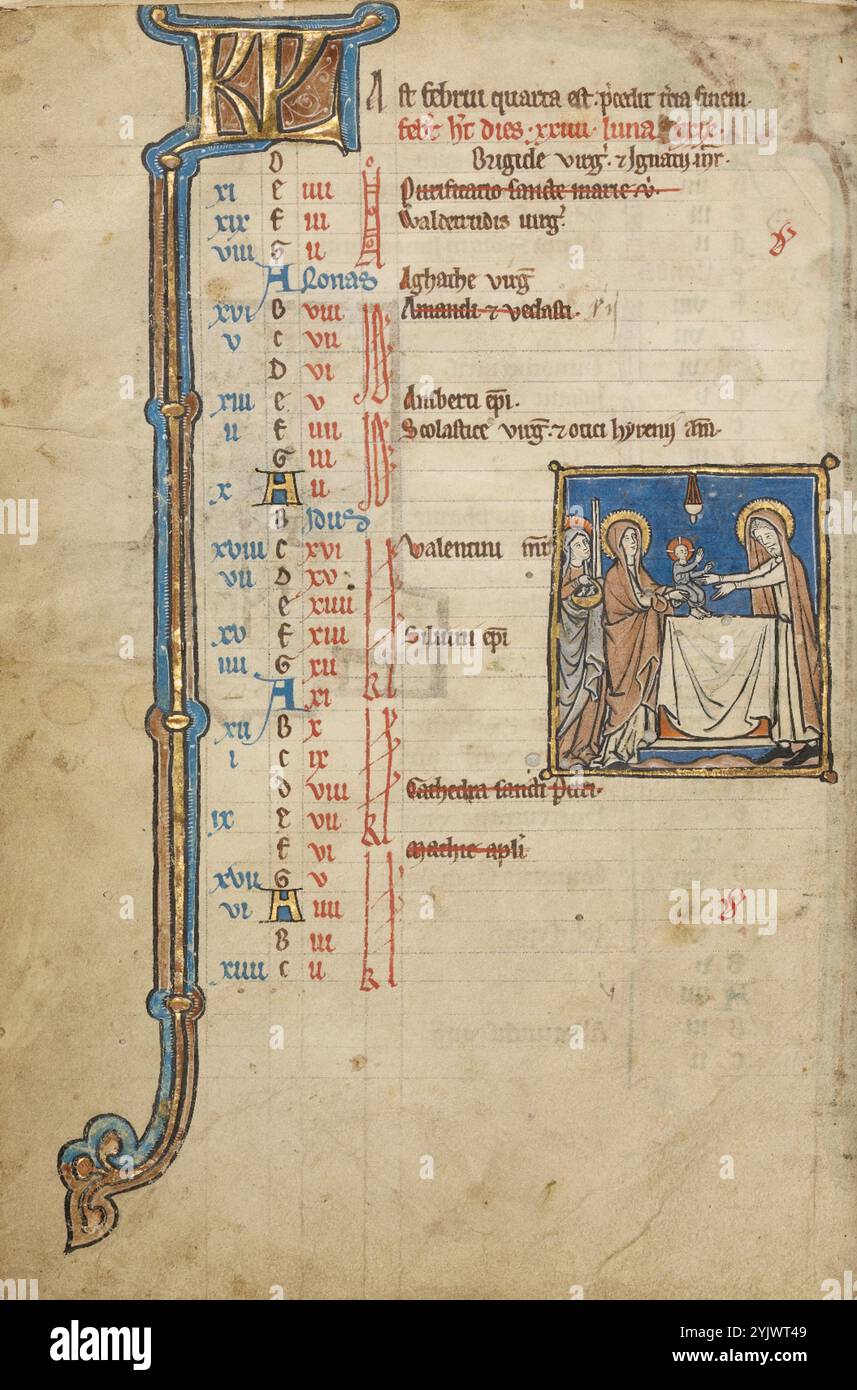 KL
Ast februi quarta est. p̄cedit t̄cia finem.
febr̄ h̄t dies xxviii luna
D Brigide virg̃. ⁊ Ignatij m̄r.
xi e iiii Purificatio sancte marie v̄.
xix f iii Waldetrudis uirg̃.
viii G ii
A Nonas Aghathe virg̃
xvi B viii Amandi ⁊ vedasti.
v C vii
D vi
xiii e v Auberti ep̄i.
ii f iiii Scolastice virg̃. ⁊ otici hyrenij am̄.
G iii
x A ii
B Idus
xviii C xvi Walentini m̄r
vii D xv
e xiiii
xv f xiii Siluini ep̄i
iiii G xii
A xi
xii B x
i C ix
D viii Cathedra sancti Petri.
ix e vii
f vi Mathie apl̄i
xvii G v
vi A iiii
B iii
xiiii C ii
alamy
Image ID: 2YJWT49
www.alamy.com